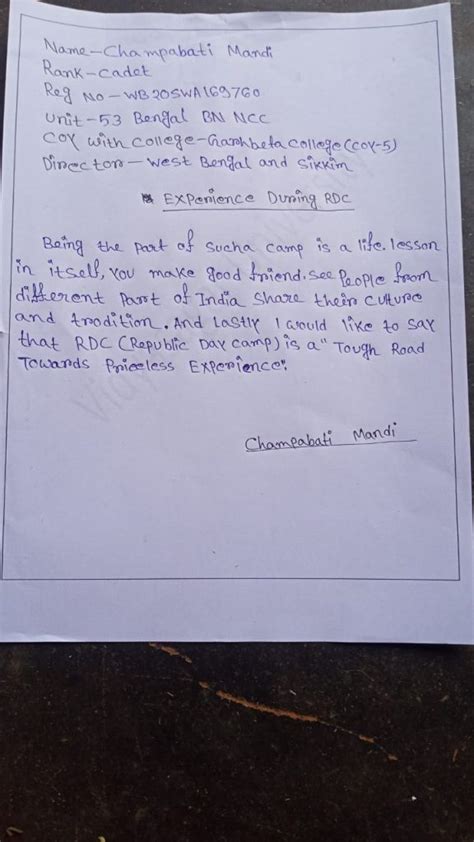 Name-Champabati Mandi
Rank-Cadet
Reg No-WB20SWA169760
Unit-53 Bengal BN NCC
COY with college-Garhbeta college(COY-5)
Director-West Bengal and Sikkim
Experience During RDC
Being the part of sucha camp is a life.lesson
in itself, You make good friend.see People from
different Part of India share their culture
and trodition. And Lastly I would like to say
that RDC (Republic Day camp) is a "Tough Road
Towards Priceless Experience."
Champabati Mandi